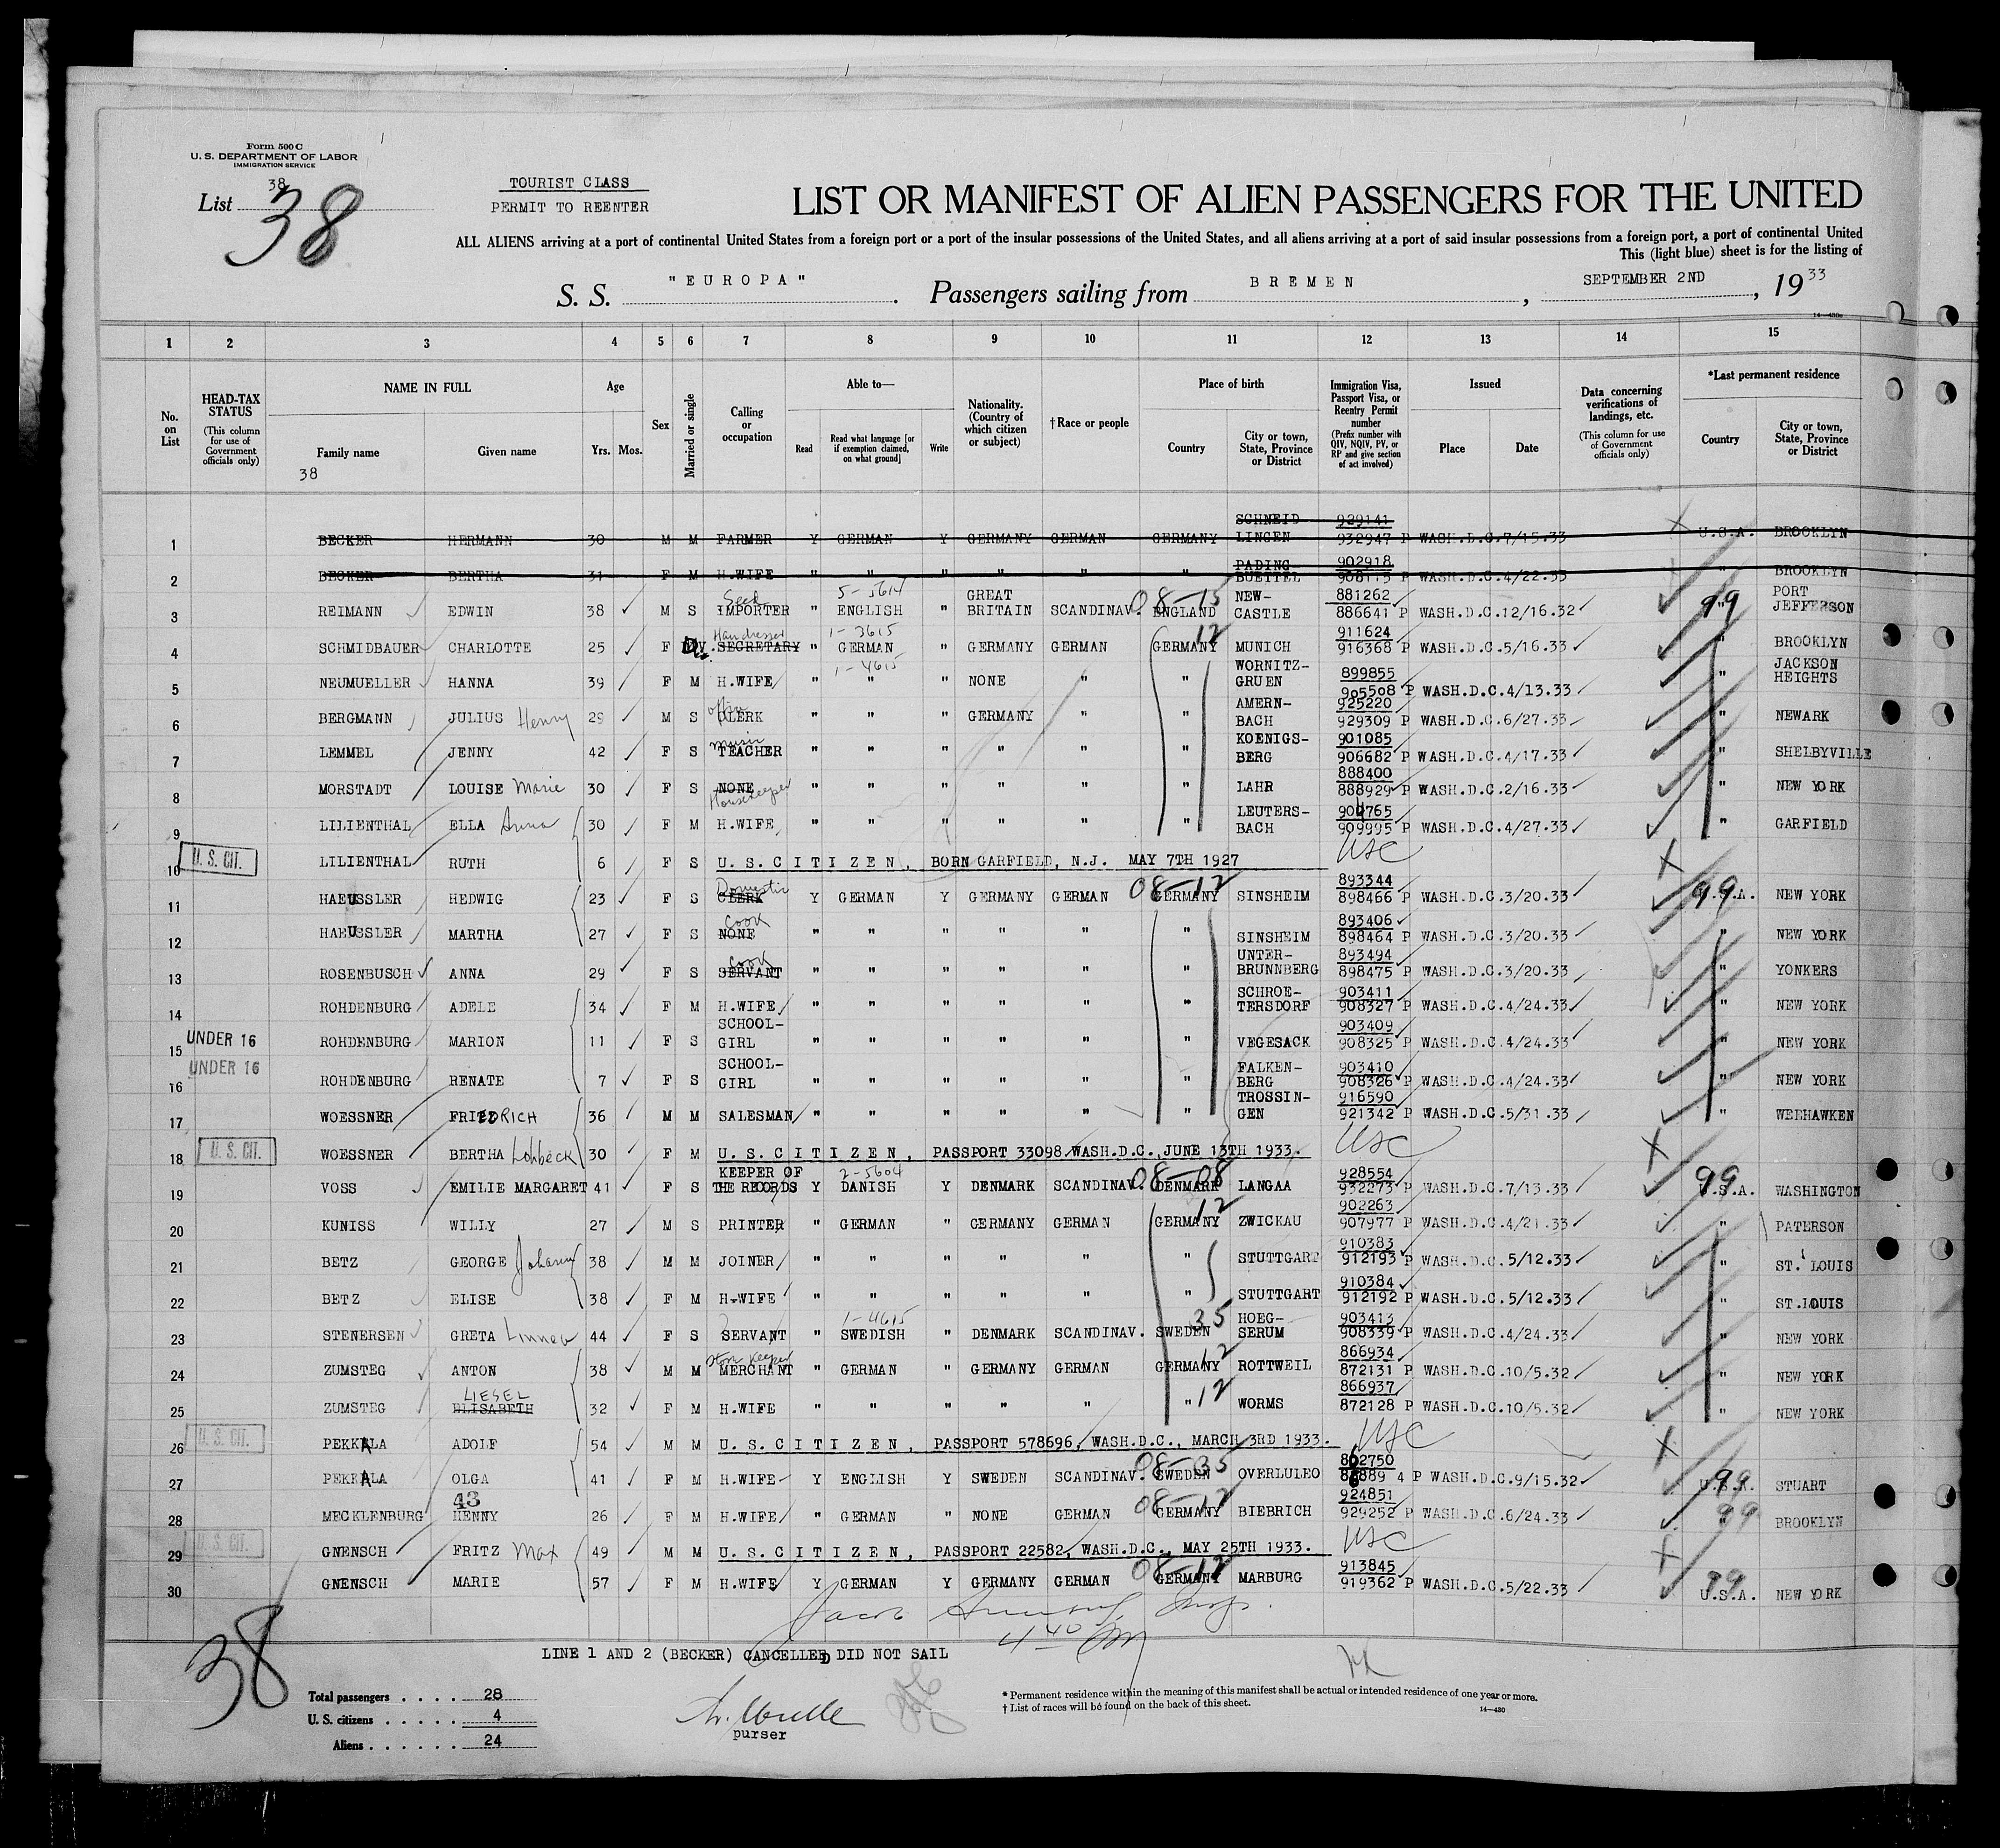 Form 500 C
U. S. DEPARTMENT OF LABOR
IMMIGRATION SERVICE
List 38
38
TOURIST CLASS
PERMIT TO REENTER
LIST OR MANIFEST OF ALIEN PASSENGERS FOR THE UNITED
ALL ALIENS arriving at a port of continental United States from a foreign port or a port of the insular possessions of the United States, and all aliens arriving at a port of said insular possessions from a foreign port, a port of continental United
This (light blue) sheet is for the listing of
S. S. "EUROPA". Passengers sailing from BREMEN, SEPTEMBER 2ND, 1933
14—430
1 2 3 4 5 6 7 8 9 10 11 12 13 14 15
No. on List
HEAD-TAX STATUS (This column for use of Government officials only)
NAME IN FULL Family name Given name
38
Age Yrs. Mos.
Sex
Married or single
Calling or occupation
Able to— Read Read what language [or if exemption claimed, on what ground] Write
Nationality. (Country of which citizen or subject)
†Race or people
Place of birth Country City or town, State, Province or District
Immigration Visa, Passport Visa, or Reentry Permit number (Prefix number with QIV, NQIV, PV, or RP and give section of act involved)
Issued Place Date
Data concerning verifications of landings, etc. (This column for use of Government officials only)
*Last permanent residence Country City or town, State, Province or District
1 BECKER HERMANN 30 M M FARMER Y GERMAN Y GERMANY GERMAN GERMANY SCHNEID LINGEN 929141 932947 P WASH.D.C.7/15.33 U.S.A. BROOKLYN
2 BECKER BERTHA 31 F M H.WIFE " " " " " " PADING BUETTEL 902918 908115 P WASH.D.C.4/22.33 " BROOKLYN
3 REIMANN EDWIN 38 M S Seed IMPORTER " 5-5614 ENGLISH " GREAT BRITAIN SCANDINAV. 08-15 ENGLAND NEW-CASTLE 881262 886641 P WASH.D.C.12/16.32 99 " PORT JEFFERSON
4 SCHMIDBAUER CHARLOTTE 25 F Div. Hairdresser SECRETARY " 1-3615 GERMAN " GERMANY GERMAN 12 GERMANY MUNICH 911624 916368 P WASH.D.C.5/16.33 " BROOKLYN
5 NEUMUELLER HANNA 39 F M H.WIFE " 1-4615 " " NONE " " WORNITZ-GRUEN 899855 905508 P WASH.D.C.4/13.33 " JACKSON HEIGHTS
6 BERGMANN JULIUS Henry 29 M S office CLERK " " " GERMANY " " AMERN-BACH 925220 929309 P WASH.D.C.6/27.33 " NEWARK
7 LEMMEL JENNY 42 F S music TEACHER " " " " " " KOENIGS-BERG 901085 906682 P WASH.D.C.4/17.33 " SHELBYVILLE
8 MORSTADT LOUISE Marie 30 F S NONE Housekeeper " " " " " " LAHR 888400 888929 P WASH.D.C.2/16.33 " NEW YORK
9 LILIENTHAL ELLA Anna 30 F M H.WIFE " " " " " " LEUTERS-BACH 904765 909995 P WASH.D.C.4/27.33 " GARFIELD
10 U. S. CIT. LILIENTHAL RUTH 6 F S U.S.CITIZEN, BORN GARFIELD, N.J. MAY 7TH 1927 USC
11 HAEUSSLER HEDWIG 23 F S Domestic CLERK Y GERMAN Y GERMANY GERMAN 08-12 GERMANY SINSHEIM 893344 898466 P WASH.D.C.3/20.33 99 U.S.A. NEW YORK
12 HAEUSSLER MARTHA 27 F S Cook NONE " " " " " " SINSHEIM 893406 898464 P WASH.D.C.3/20.33 " NEW YORK
13 ROSENBUSCH ANNA 29 F S Cook SERVANT " " " " " " UNTER-BRUNNBERG 893494 898475 P WASH.D.C.3/20.33 " YONKERS
14 ROHDENBURG ADELE 34 F M H.WIFE " " " " " " SCHROE-TERSDORF 903411 908327 P WASH.D.C.4/24.33 " NEW YORK
15 UNDER 16 ROHDENBURG MARION 11 F S SCHOOL-GIRL " " " " " " VEGESACK 903409 908325 P WASH.D.C.4/24.33 " NEW YORK
16 UNDER 16 ROHDENBURG RENATE 7 F S SCHOOL-GIRL " " " " " " FALKEN-BERG 903410 908326 P WASH.D.C.4/24.33 " NEW YORK
17 WOESSNER FRIEDRICH 36 M M SALESMAN " " " " " " TROSSIN-GEN 916590 921342 P WASH.D.C.5/31.33 " WEEHAWKEN
18 U. S. CIT. WOESSNER BERTHA Lohbeck 30 F M U.S.CITIZEN, PASSPORT 33098 WASH.D.C., JUNE 13TH 1933. USC
19 VOSS EMILIE MARGARET 41 F S KEEPER OF THE RECORDS Y 2-5604 DANISH Y DENMARK SCANDINAV. 08-08 DENMARK LANGAA 928554 932273 P WASH.D.C.7/13.33 99 U.S.A. WASHINGTON
20 KUNISS WILLY 27 M S PRINTER " GERMAN " GERMANY GERMAN 12 GERMANY ZWICKAU 902263 907977 P WASH.D.C.4/21.33 " PATERSON
21 BETZ GEORGE Johann 38 M M JOINER " " " " " " STUTTGART 910383 912193 P WASH.D.C.5/12.33 " ST. LOUIS
22 BETZ ELISE 38 F M H-WIFE " " " " " " STUTTGART 910384 912192 P WASH.D.C.5/12.33 " ST.LOUIS
23 STENERSEN GRETA Linnea 44 F S SERVANT " 1-4615 SWEDISH " DENMARK SCANDINAV. SWEDEN 35 HOEG-SERUM 903413 908339 P WASH.D.C.4/24.33 " NEW YORK
24 ZUMSTEG ANTON 38 M M Store keeper MERCHANT " GERMAN " GERMANY GERMAN GERMANY 12 ROTTWEIL 866934 872131 P WASH.D.C.10/5.32 " NEW YORK
25 ZUMSTEG LIESEL ELISABETH 32 F M H.WIFE " " " " " " 12 WORMS 866937 872128 P WASH.D.C.10/5.32 " NEW YORK
26 U. S. CIT. PEKKALA ADOLF 54 M M U.S.CITIZEN, PASSPORT 578696, WASH.D.C., MARCH 3RD 1933. USC
27 PEKKALA OLGA 41 F M H.WIFE Y ENGLISH Y SWEDEN SCANDINAV. 08-35 SWEDEN OVERLULEO 862750 P WASH.D.C.9/15.32 99 U.S.A. STUART
28 MECKLENBURG 43 HENNY 26 F M H.WIFE " GERMAN " NONE GERMAN 08-12 GERMANY BIEBRICH 924851 929252 P WASH.D.C.6/24.33 99 " BROOKLYN
29 U. S. CIT. GNENSCH FRITZ Max 49 M M U.S.CITIZEN, PASSPORT 22582, WASH.D.C., MAY 25TH 1933. USC
30 GNENSCH MARIE 57 F M H.WIFE Y GERMAN Y GERMANY GERMAN 08-12 GERMANY MARBURG 913845 919362 P WASH.D.C.5/22.33 99 U.S.A. NEW YORK
Jacob
4 40 PM
LINE 1 AND 2 (BECKER) CANCELLED DID NOT SAIL
38
Total passengers . . . . 28
U. S. citizens . . . . . 4
Aliens . . . . . . 24
purser
* Permanent residence within the meaning of this manifest shall be actual or intended residence of one year or more.
† List of races will be found on the back of this sheet.
14—430